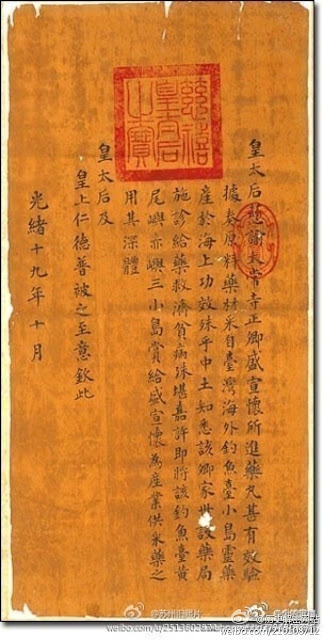 慈禧
皇太后
之寶
皇太后慈諭太常寺正卿盛宣懷所進藥丸甚有效驗
據奏原料藥材采自臺灣海外釣魚臺小島靈藥
產於海上功效殊乎中土知悉該卿家世設藥局
施診給藥救濟貧病殊堪嘉許即將該釣魚臺黃
尾嶼赤嶼三小島賞給盛宣懷為產業供采藥之
用其深體
皇太后及
皇上仁德普被之至意欽此
光緒十九年十月